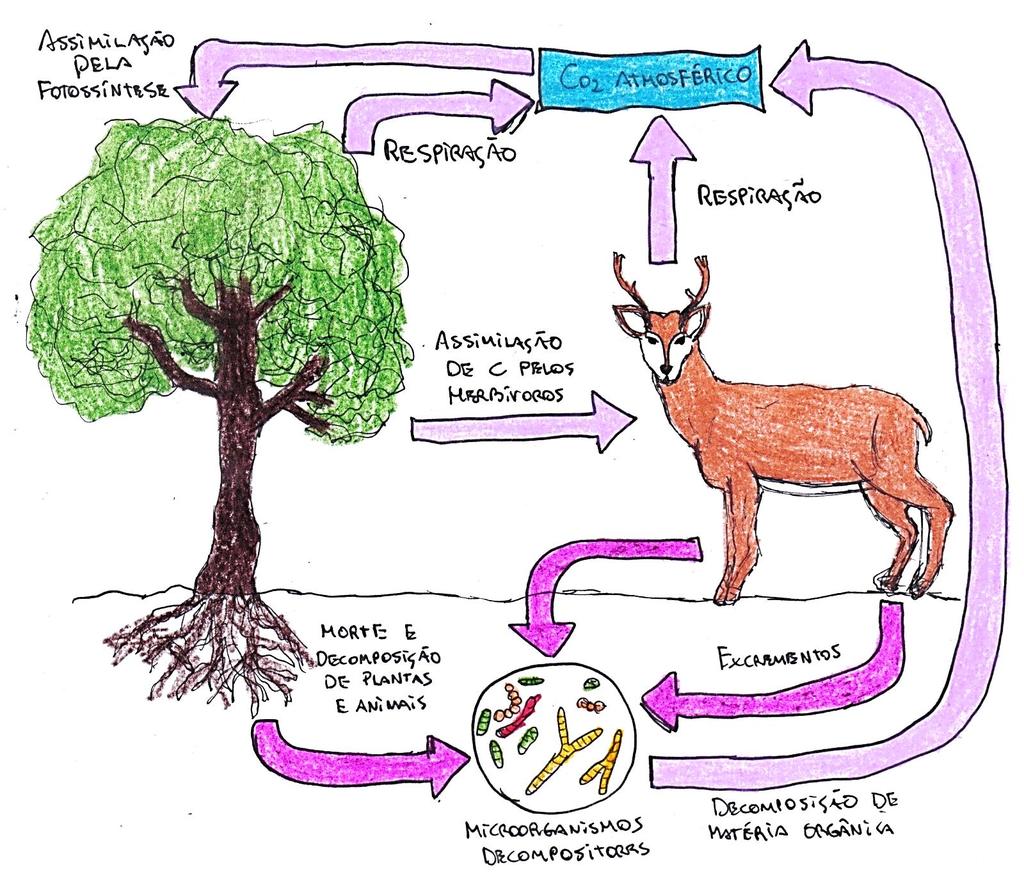 ASSIMILAÇÃO
PELA
FOTOSSÍNTESE
CO2 ATMOSFÉRICO
RESPIRAÇÃO
RESPIRAÇÃO
ASSIMILAÇÃO
DE C PELOS
HERBÍVOROS
MORTE E
DECOMPOSIÇÃO
DE PLANTAS
E ANIMAIS
EXCREMENTOS
MICROORGANISMOS
DECOMPOSITORES
DECOMPOSIÇÃO DE
MATÉRIA ORGÂNICA